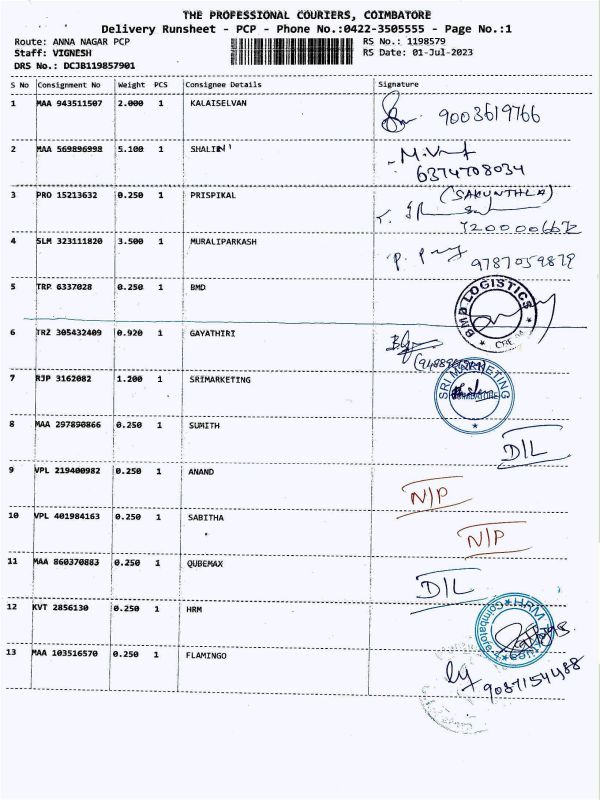 THE PROFESSIONAL COURIERS, COIMBATORE
Delivery Runsheet - PCP - Phone No.:0422-3505555 - Page No.:1
Route: ANNA NAGAR PCP RS No.: 1198579
Staff: VIGNESH RS Date: 01-Jul-2023
DRS No.: DCJB119857901
S No Consignment No Weight PCS Consignee Details Signature
1 MAA 943511507 2.000 1 KALAISELVAN 9003619766
2 MAA 569896998 5.100 1 SHALINI M.V
6374708034
3 PRO 15213632 0.250 1 PRISPIKAL (SAKUNTHLA)
4 SLM 323111820 3.500 1 MURALIPARKASH P. 9787059879
5 TRP 6337028 0.250 1 BMD BMD LOGISTICS
6 TRZ 305432409 0.920 1 GAYATHIRI
7 RJP 3162082 1.200 1 SRIMARKETING SRI MARKETING
COIMBATORE
8 MAA 297890866 0.250 1 SUMITH D/L
9 VPL 219400982 0.250 1 ANAND N/P
10 VPL 401984163 0.250 1 SABITHA N/P
11 MAA 860370883 0.250 1 QUBEMAX D/L
12 KVT 2856130 0.250 1 HRM Coimbatore
13 MAA 103516570 0.250 1 FLAMINGO 9087154488